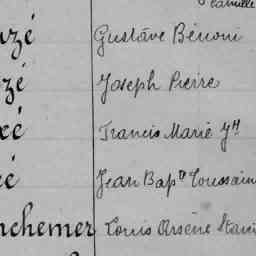 Camille
uzé Gustave Bénoni
zé Joseph Pierre
xé Francis Marie Jh
é Jean Bapte Toussain
nchemer Louis Arsène Stani